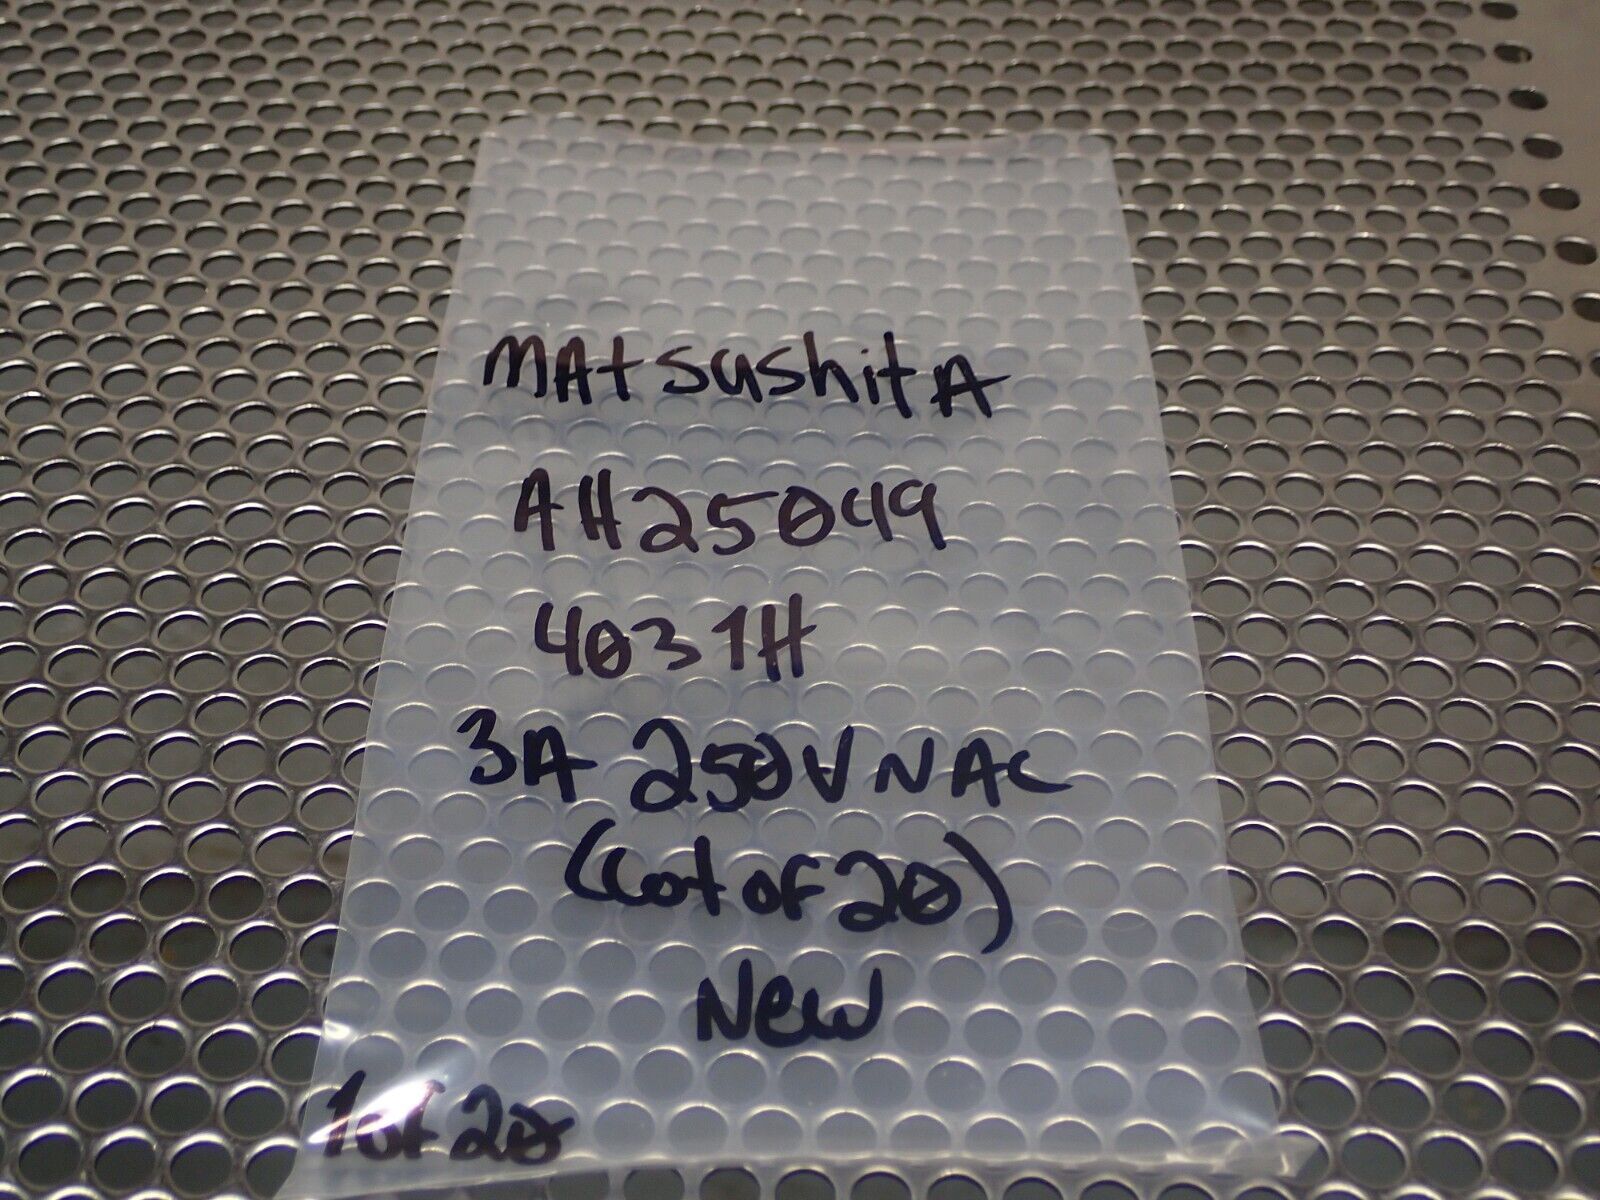 MAtsushitA
AH25049
4031H
3A 250V N AC
(Lot of 20)
New
1 of 20